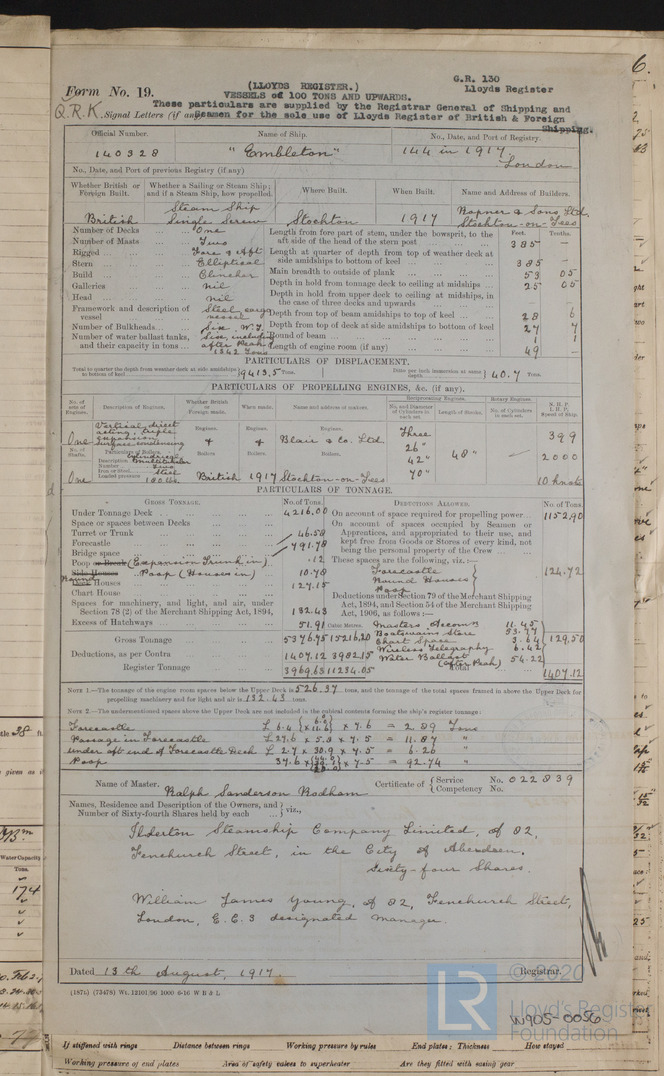 6.
G.R. 130
Form No. 19. (LLOYDS REGISTER.) Lloyds Register
VESSELS of 100 TONS AND UPWARDS.
These particulars are supplied by the Registrar General of Shipping and
Q.R.K. Signal Letters (if any) Seamen for the sole use of Lloyds Register of British & Foreign
Shipping.
Official Number. Name of Ship. No., Date, and Port of Registry.
140328 "Embleton" 144 in 1917, London
No., Date, and Port of previous Registry (if any)
Whether British or Foreign Built. Whether a Sailing or Steam Ship; and if a Steam Ship, how propelled. Where Built. When Built. Name and Address of Builders.
British Steam Ship Single Screw Stockton 1917 Ropner & Sons, Ltd. Stockton-on-Tees
Feet. Tenths.
Number of Decks ... One Length from fore part of stem, under the bowsprit, to the aft side of the head of the stern post 385 —
Number of Masts ... Two
Rigged ... Fore & Aft Length at quarter of depth from top of weather deck at side amidships to bottom of keel 385 —
Stern ... Elliptical
Build ... Clincher Main breadth to outside of plank 53 05
Galleries nil Depth in hold from tonnage deck to ceiling at midships 25 05
Head nil Depth in hold from upper deck to ceiling at midships, in the case of three decks and upwards
Framework and description of vessel Steel Depth from top of beam amidships to top of keel 28 6
Number of Bulkheads Six, W.T. Depth from top of deck at side amidships to bottom of keel 27 7
Number of water ballast tanks, and their capacity in tons Six, including after Peak 1242 Tons Round of beam 1 1
Length of engine room (if any) 49 —
PARTICULARS OF DISPLACEMENT.
Total to quarter the depth from weather deck at side amidships to bottom of keel 9413.5 Tons. Ditto per inch immersion at same depth 40.7 Tons.
PARTICULARS OF PROPELLING ENGINES, &c. (if any).
No. of sets of Engines. Description of Engines. Whether British or Foreign made. When made. Name and address of makers. Reciprocating Engines. Rotary Engines. N.H.P. I.H.P. Speed of Ship.
No. and Diameter of Cylinders in each set. Length of Stroke. No. of Cylinders in each set.
One Vertical direct acting, triple expansion, surface condensing Engines. Engines. Engines. Three 399
Blair & Co. Ltd. 26" 48" — 2000
No. of Shafts. Particulars of Boilers. Boilers Boilers Boilers. 42"
Description
Number Two
Iron or Steel Steel
Loaded pressure 180 lbs. 70"
One British 1917 Stockton-on-Tees 10 knots
PARTICULARS OF TONNAGE.
GROSS TONNAGE. No. of Tons. DEDUCTIONS ALLOWED. No. of Tons.
Under Tonnage Deck 4216.00 On account of space required for propelling power 1152.90
Space or spaces between Decks On account of spaces occupied by Seamen or
Turret or Trunk 46.58 Apprentices, and appropriated to their use, and
Forecastle 791.78 kept free from Goods or Stores of every kind, not
Bridge space being the personal property of the Crew
Poop or Break (Expansion Trunk in) .12 These spaces are the following, viz.:—
Side Houses Poop (Houses in) 10.78 Forecastle
Round Deck Houses 127.15 Round Houses 124.72
Chart House Poop
Spaces for machinery, and light, and air, under Section 78 (2) of the Merchant Shipping Act, 1894, 132.43 Deductions under Section 79 of the Merchant Shipping Act, 1894, and Section 54 of the Merchant Shipping Act, 1906, as follows:—
Excess of Hatchways 51.91 Cubic Metres. Masters Accomn 11.45
Boatswains Store 53.77
Gross Tonnage 5376.75 15216.20 Chart Space 3.64 129.50
Wireless Telegraphy 6.42
Deductions, as per Contra 1407.12 3982.15 Water Ballast (after Peak) 54.22
Register Tonnage 3969.63 11234.05 Total 1407.12
NOTE 1.—The tonnage of the engine room spaces below the Upper Deck is 526.37 tons, and the tonnage of the total spaces framed in above the Upper Deck for propelling machinery and for light and air is 132.43 tons.
NOTE 2.—The undermentioned spaces above the Upper Deck are not included in the cubical contents forming the ship's register tonnage:—
Forecastle L 6.4 x 7.6 = 2.89 Tons
Passage in Forecastle L 27.6 x 5.8 x 7.5 = 11.87 "
under aft end of Forecastle Deck L 2.7 x 30.9 x 7.5 = 6.26 "
Poop 37.6 x 7.5 = 92.74 "
Name of Master. Ralph Sanderson Rodham Certificate of { Service No. 022839
Competency No.
Names, Residence and Description of the Owners, and Number of Sixty-fourth Shares held by each } viz.,
Ilderton Steamship Company Limited, of 82,
Fenchurch Street, in the City of Aberdeen.
Sixty-four Shares.
William James Young, of 82, Fenchurch Street,
London, E.C.3 designated manager.
Dated 13th August, 1917. Registrar.
(1871) (73478) Wt. 12101/96 1000 6-16 W B & L
LR © 2020
Lloyd's Register
Foundation
W905-0056
If stiffened with rings Distance between rings Working pressure by rules End plates: Thickness How stayed
Working pressure of end plates Area of safety valves to superheater Are they fitted with easing gear
Water Capacity
Tons.
174